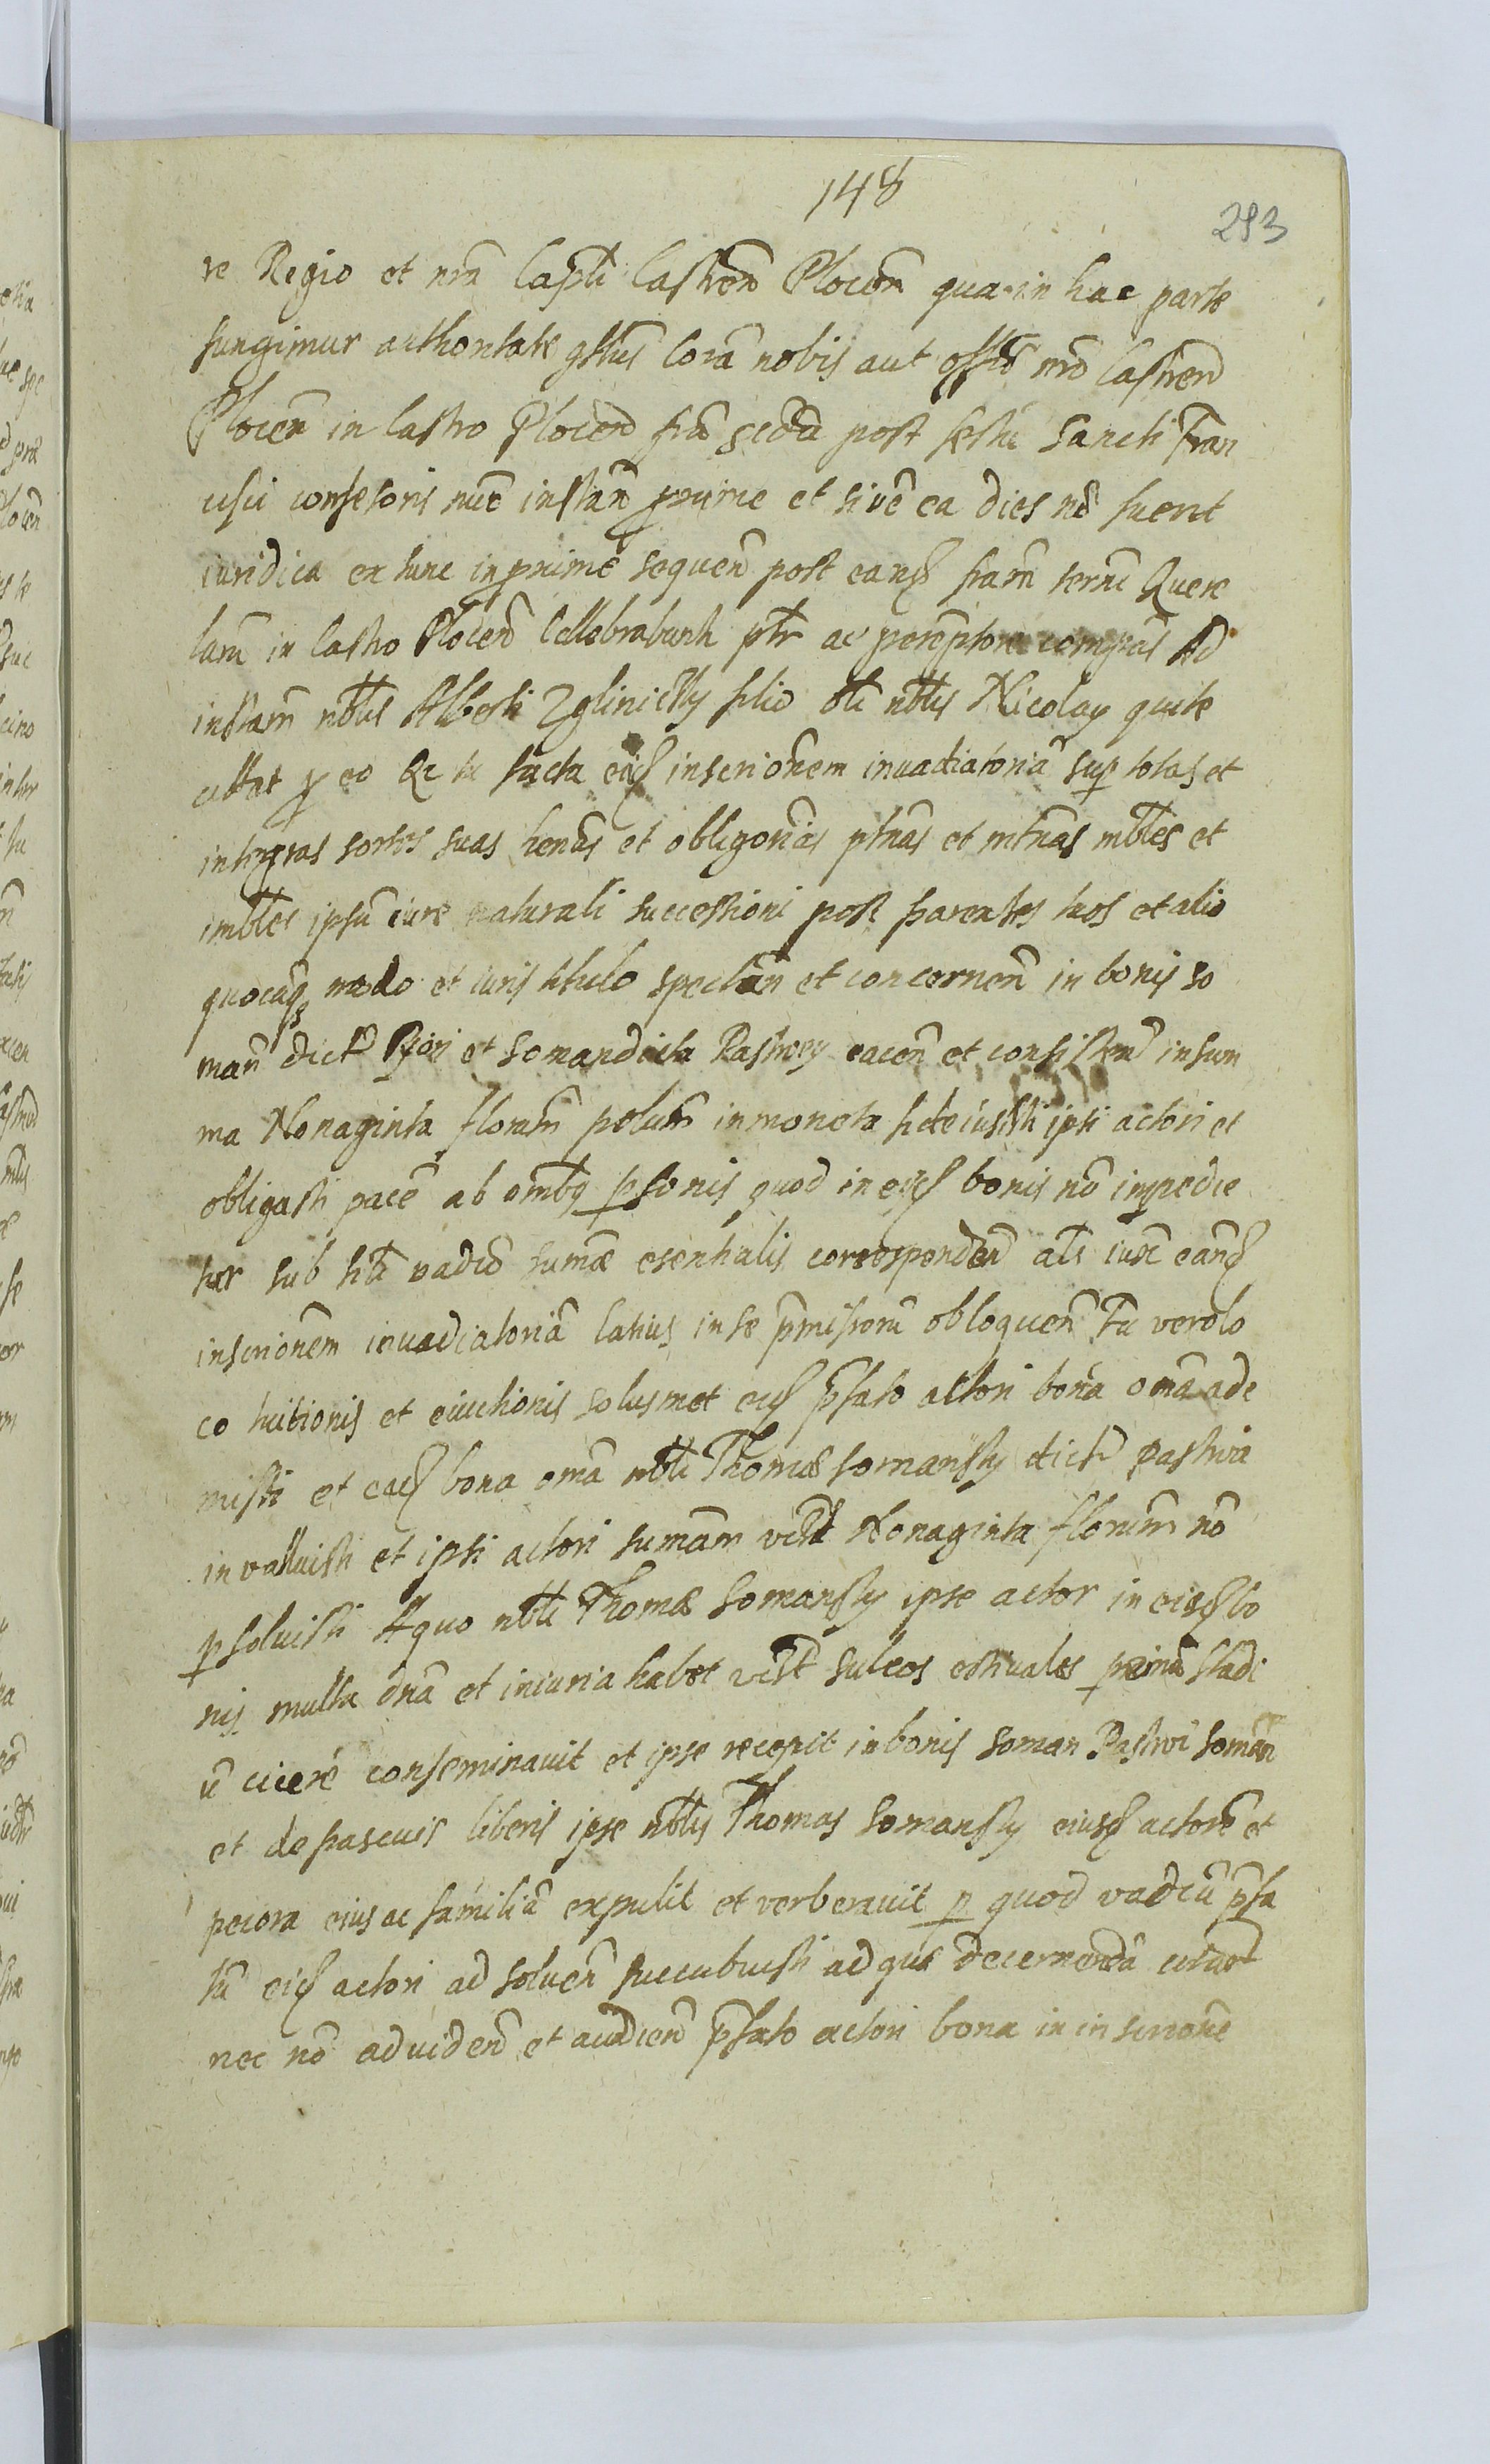 148
293
re Regio et nrã Capti Castren Plocen̄ qua in hac parte
fungimur authoritate qstus Corã nobis aut offio nro Castren
Plocen̄ in Castro Plocen̄ fria secda post festũ Sancti Fran
cisci confesoris nũc instan̄ prime et si vẽ ea dies nõ fuerit
iuridica ex tunc in prime sequen̄ post eand fram termĩ Quere
larũ in Castro Plocen̄ Cellebrabunt ptr ac peremptorie compãs Ad
instam nbtis Alberti Zglinicky filio olĩ nbtis Nicolay qui te
cittat p eo Qr tu facta eid inscrionem inuadiatoriã sup totas et
integras sortes suas henãs et obligonãs ptnas et mtnas mbtes et
imbtes ipsũ iure naturali successioni post parentes tuos et alio
quocũq modo et iuris titulo spectan̄ et concernen̄ in bonis so
man̄ dict et Somandicta Pastwy iacen̄ et consisten̄ in sum
ma Nonaginta floram polum in moneta fideiussisti ipsi actori et
obligasti pacẽ ab ombq psonis quod in eisd bonis nõ impedie
tur sub vadio sumæ esentialis corespenden̄ als iuxt eand
inscrionem inuadiatoriã latius in se pmissorũ obloquen̄ Tu vero lo
co tuitionis et euictionis solusmet eid pfato actori bona omã ade
misti et ead bona omã nbti Thomæ Somansky dict Pastwa
invalluisti et ipsi actori sumam vdlt Nonaginta florum nõ
psoluisti A quo nbti Thomæ Somansky ipse actor in eisd bo
nis multa dnã et iniuria habet vdlt sulcos estiuales primũ stadi
ũ cicere conseminauit et ipse recepit in bonis Soman Pastwi Soman
et de pascuis liberis ipse nbtis Thomas Somansky eiusd actorẽ et
pecora eius ac familiã expulit et verberauit p quod vadiũ pfa
tũ eid actori ad soluen̄ succubuisti ad quæ decernendã citat
nec nõ ad viden̄ et audien̄ pfato actori bona in inscrione